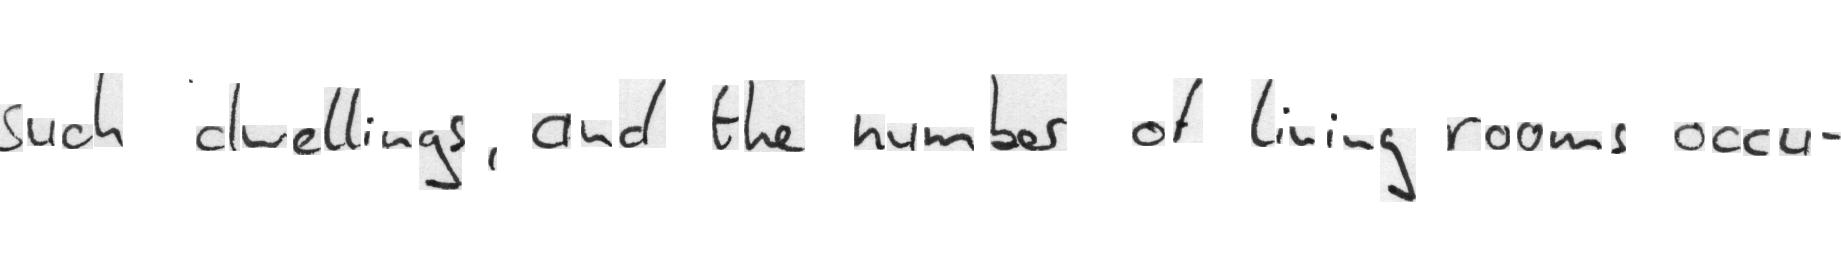 such dwellings, and the number of living rooms occu-